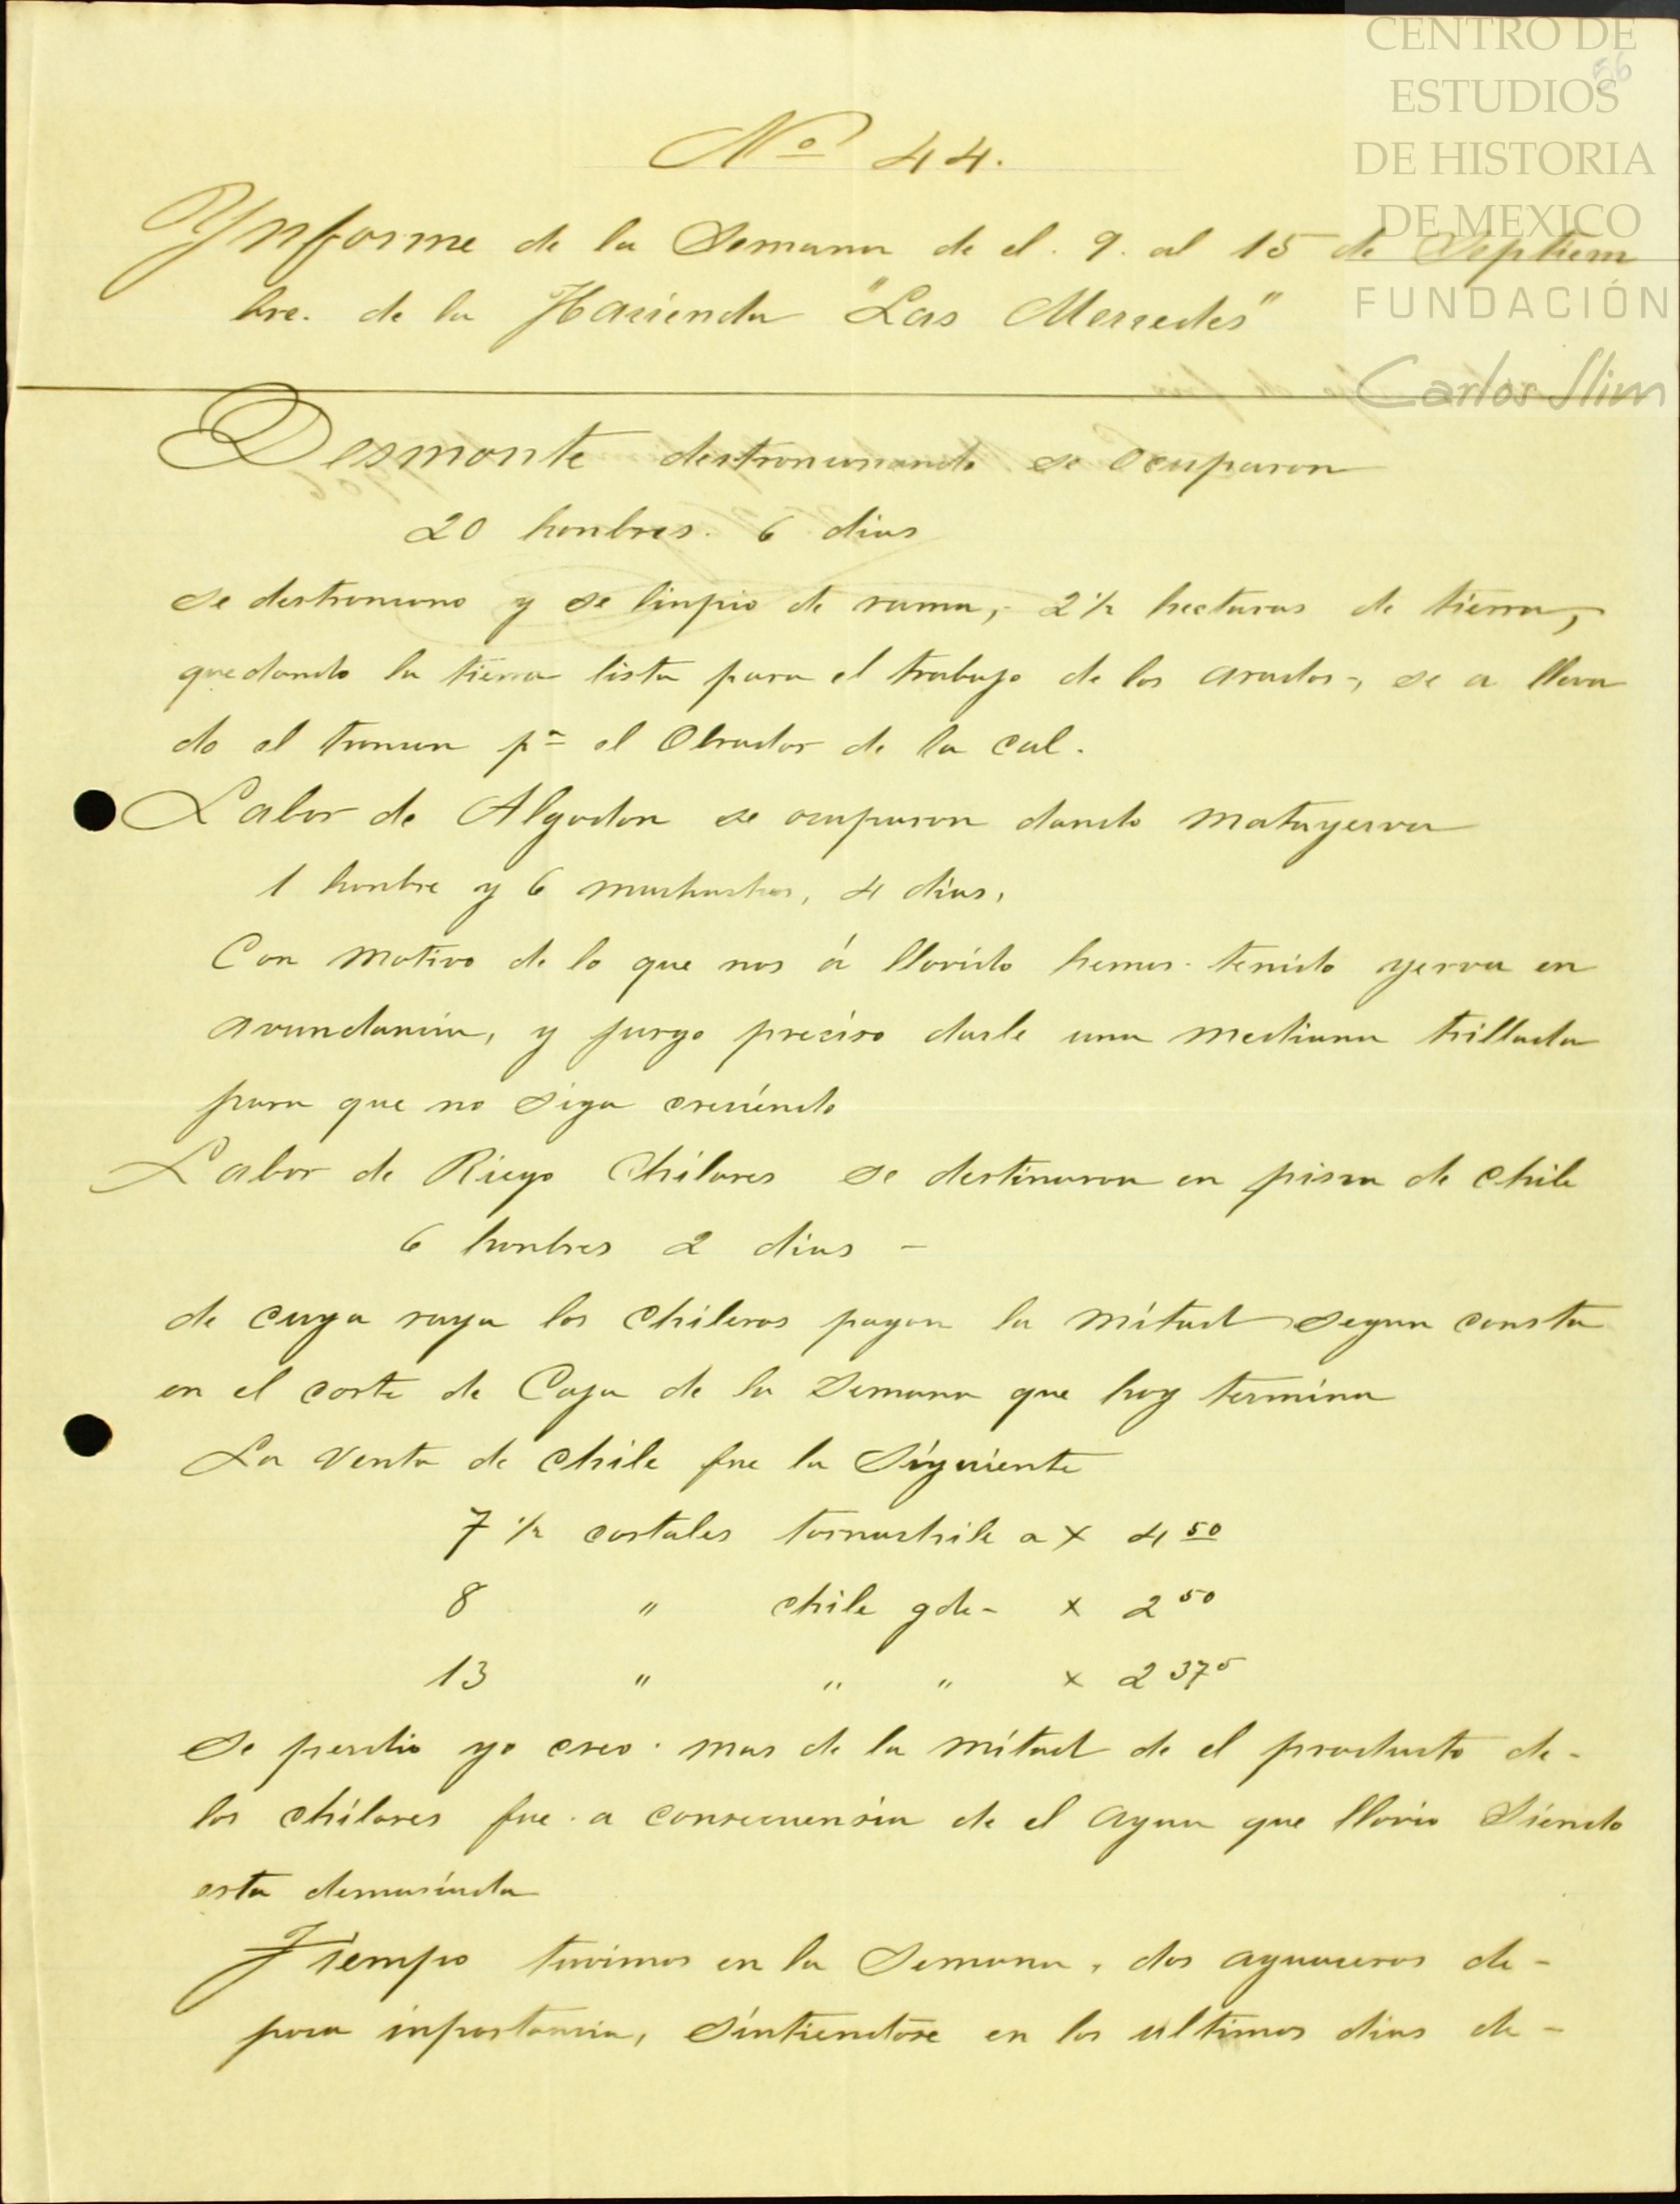 CENTRO DE
ESTUDIOS
DE HISTORIA
DE MEXICO
FUNDACIÓN
Carlos Slim
56
Nº 44.
Ynforme de la Semana de el. 9. al 15 de Septiem
bre. de la Hacienda "Las Mercedes"
Desmonte destronconando se Ocuparon
20 honbres. 6 dias
se destroncono y se linpio de rama, 2 1/2 hectaras de tierra,
quedando la tierra lista para el trabajo de los arados, se a lleva
do el troncon pª el Obrador de la cal.
Labor de Algodon se ocuparon dando matayerva
1 honbre y 6 muchachos, 4 dias,
Con motivo de lo que nos á llovido hemos tenido yerva en
avundancia, y jusgo preciso darle una mediana trillada
para que no siga creciendo
Labor de Riego Chilares se destinaron en pisca de chile
6 honbres 2 dias -
de cuya raya los chileros pagan la mitad segun consta
en el corte de Caja de la Semana que hoy termina
La venta de chile fue la Siguiente
7 1/2 costales tornachile a x 4 50
8 " chile gde- x 2 50
13 " " " x 2 375
Se perdio yo creo. mas de la mitad de el producto de-
los chilares fue. a consecuensia de el agua que llovio Siendo
esta demasiada
Tiempo tuvimos en la Semana, dos aguaceros de-
poca inportancia, Sintiendose en los ultimos dias de-